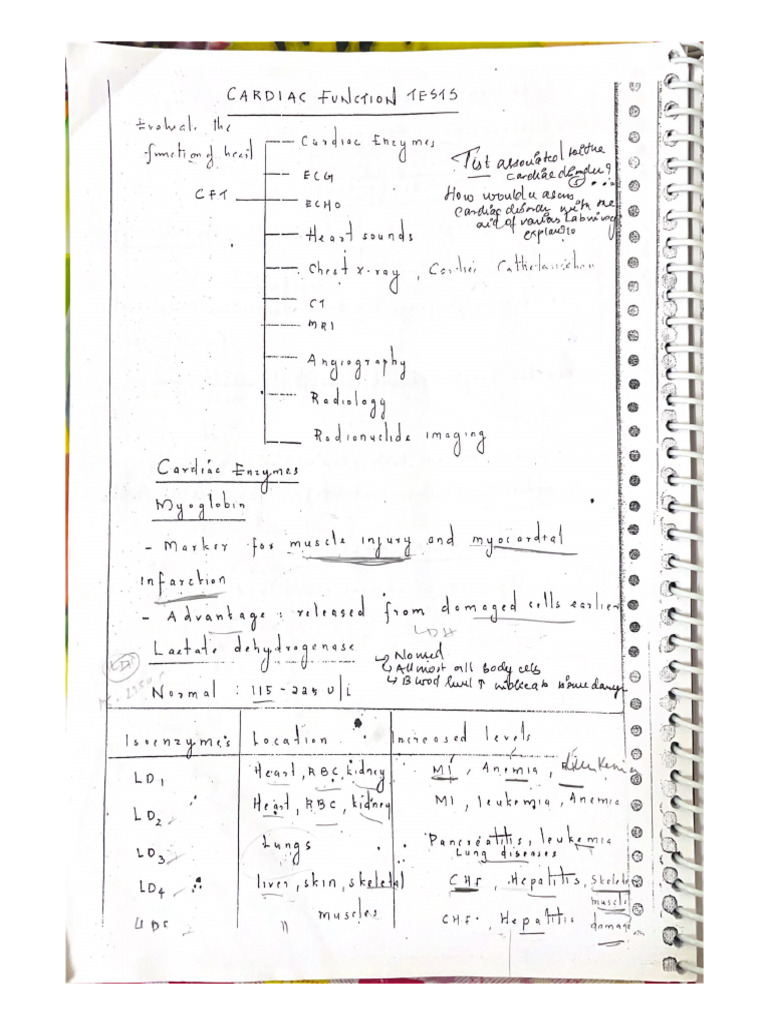 CARDIAC FUNCTION TESTS
Evaluate the
function of heart
CFT
Cardiac Enzymes
ECG
ECHO
Heart sounds
Chest x-ray, Cardiac
CT
MRI
Angiography
Radiology
Radionuclide imaging
Test associated
cardiac
How would u
cardiac with the
aid of various Lab
Cardiac Enzymes
Myoglobin
- Marker for muscle injury and myocardial
infarction
- Advantage : released from damaged cells earlier
LDH
Lactate dehydrogenase
LDH
all body cells
Blood level ↑ tissue damage
Normal : 115-225 U/i
Isoenzymes Location Increased levels
LD1 Heart, RBC, kidney MI, Anemia, Leukemia
LD2 Heart, RBC, kidney MI, leukemia, Anemia
LD3 Lungs Pancreatitis, leukemia
Lung diseases
LD4 liver, skin, skeletal CHF, Hepatitis, Skeletal
muscles muscle
LD5 " CHF, Hepatitis damage